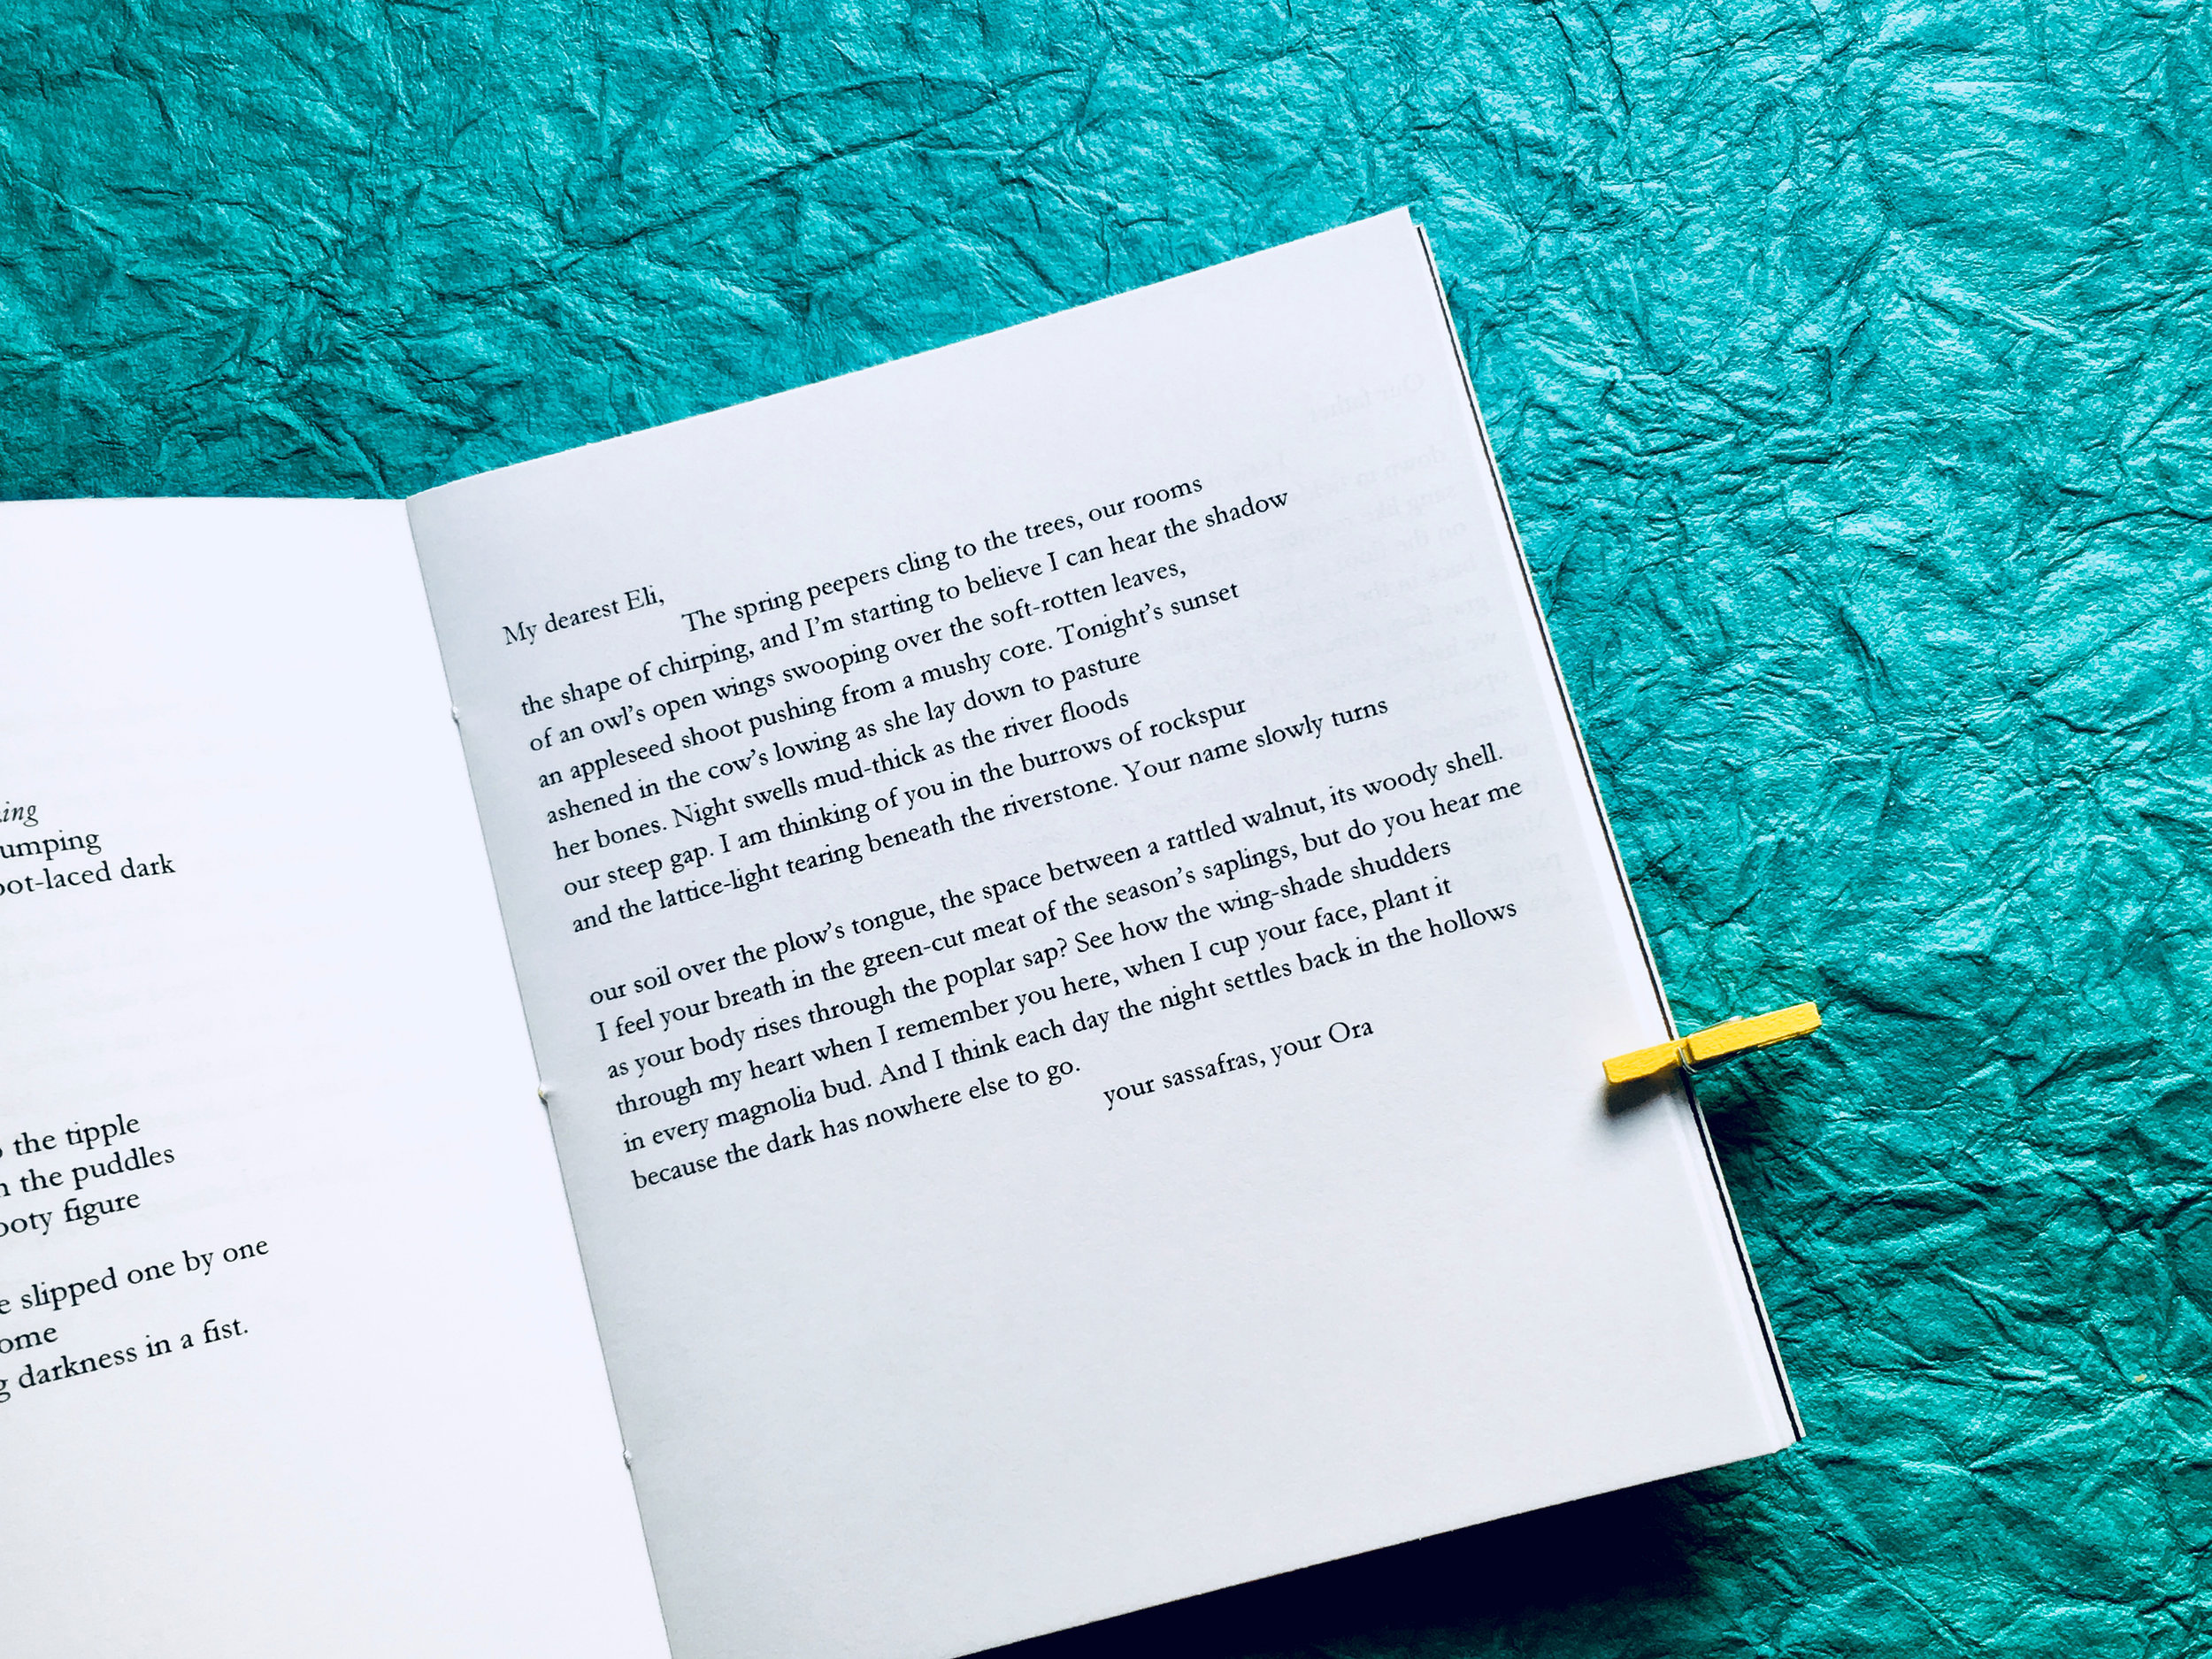 umping
dark
the tipple
the puddles
figure
slipped one by one
darkness in a fist.
My dearest Eli,
The spring peepers cling to the trees, our rooms
the shape of chirping, and I'm starting to believe I can hear the shadow
of an owl's open wings swooping over the soft-rotten leaves,
an appleseed shoot pushing from a mushy core. Tonight's sunset
ashened in the cow's lowing as she lay down to pasture
her bones. Night swells mud-thick as the river floods
our steep gap. I am thinking of you in the burrows of rockspur
and the lattice-light tearing beneath the riverstone. Your name slowly turns
our soil over the plow's tongue, the space between a rattled walnut, its woody shell.
I feel your breath in the green-cut meat of the season's saplings, but do you hear me
as your body rises through the poplar sap? See how the wing-shade shudders
through my heart when I remember you here, when I cup your face, plant it
in every magnolia bud. And I think each day the night settles back in the hollows
because the dark has nowhere else to go.
your sassafras, your Ora